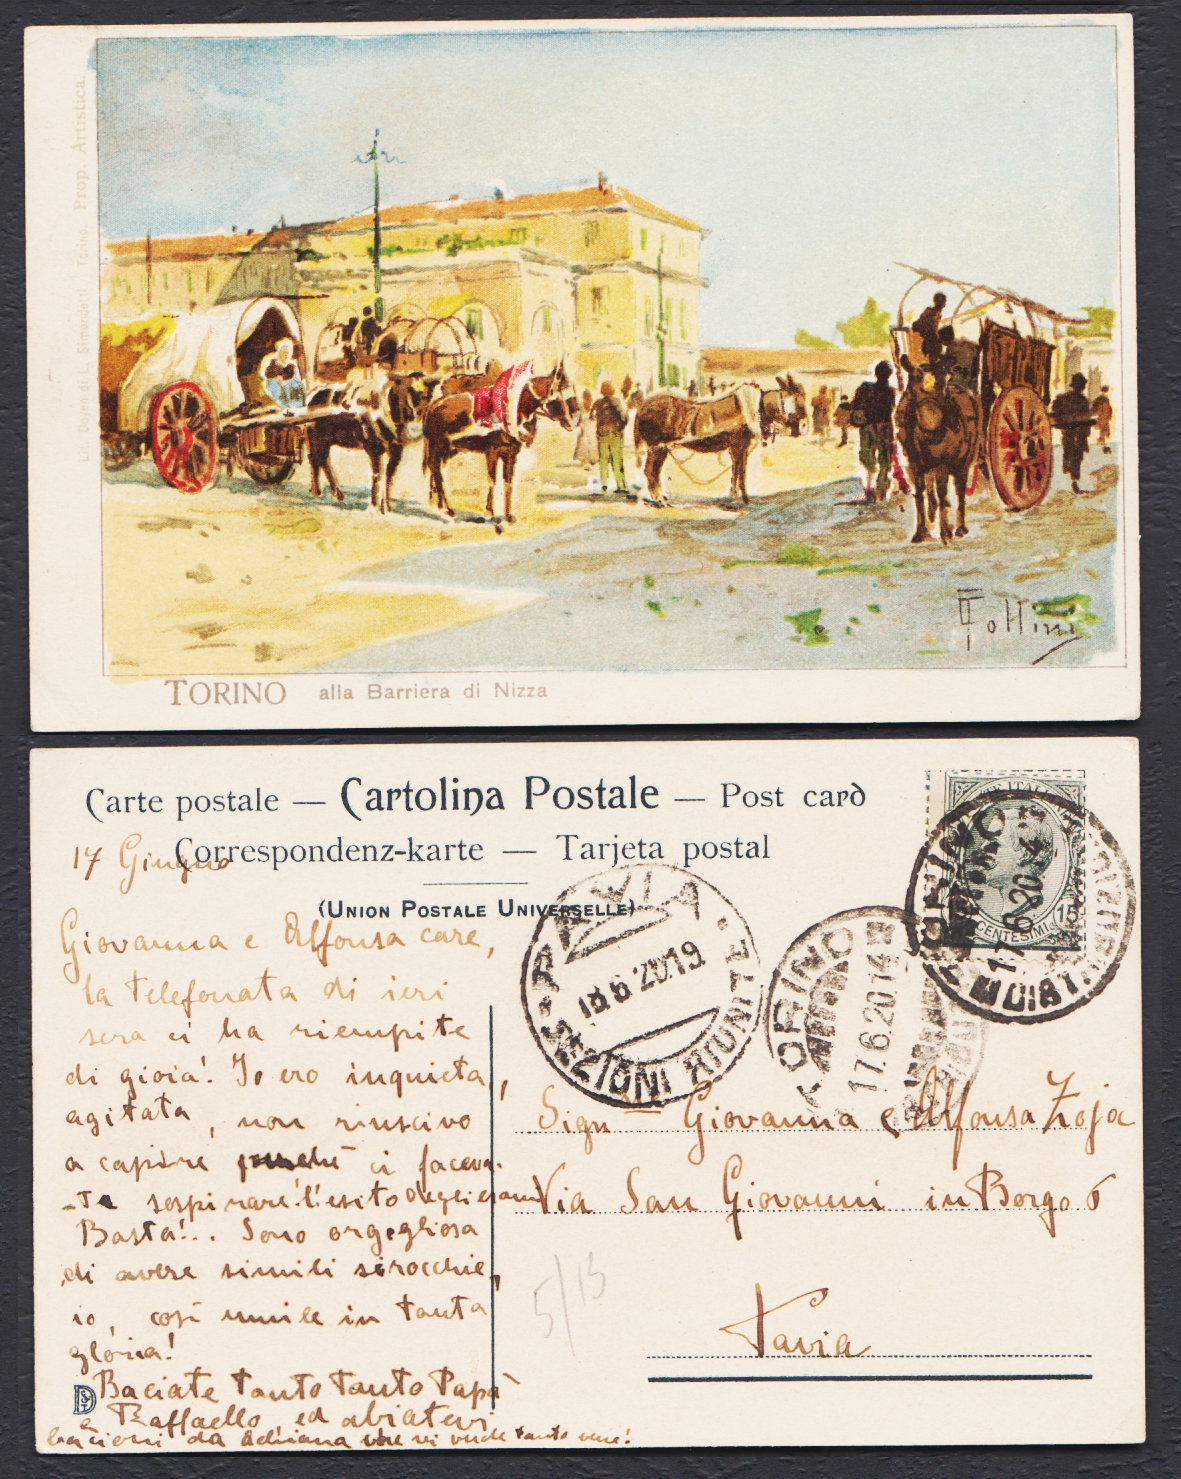 Lit. Doyen di L. Simondetti Torino. Prop. Artistica.
GTollini
TORINO alla Barriera di Nizza
Carte postale — Cartolina Postale — Post card
Correspondenz-karte — Tarjeta postal
(Union Postale Universelle)
17 Giugno
Giovanna e Alfonsa care,
la telefonata di ieri
sera ci ha riempite
di gioia! Io ero inquieta,
agitata, non riuscivo
a capire perchè ci faceva-
te sospirare l'esito degli esami
Basta!.. Sono orgogliosa
di avere simili sirocchie,
io, così umile in tanta
gloria!
Baciate tanto tanto Papà
e Raffaello, ed abiatevi
bacioni da Adriana che vi vuole tanto bene!
POSTE ITALIANE
CENTESIMI 15
TORINO
17.6.20.14
DISTRIBUZIONE
TORINO
17.6.20.14
PAVIA
18.6.20.19
SEZIONI RIUNITE
Sign Giovanna e Alfonsa Zoja
Via San Giovanni in Borgo 6
Pavia
5/13